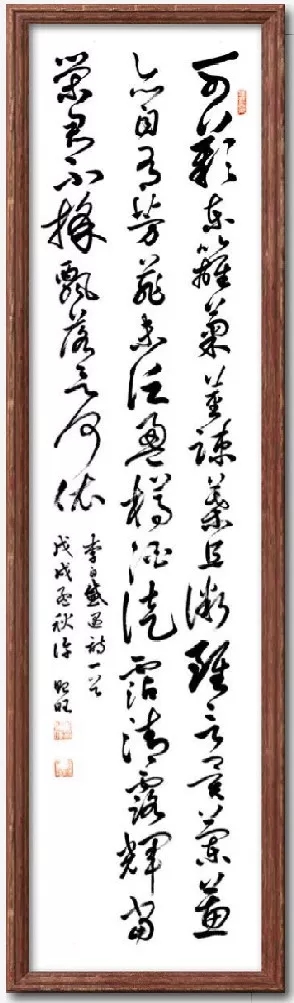 可歎東籬菊莖疎葉且微雖言異蘭蕙
亦自有芳菲未泛盈樽酒徒霑清露輝當
榮君不採飄落欲何依
李白感遇詩一首
戊戌秋